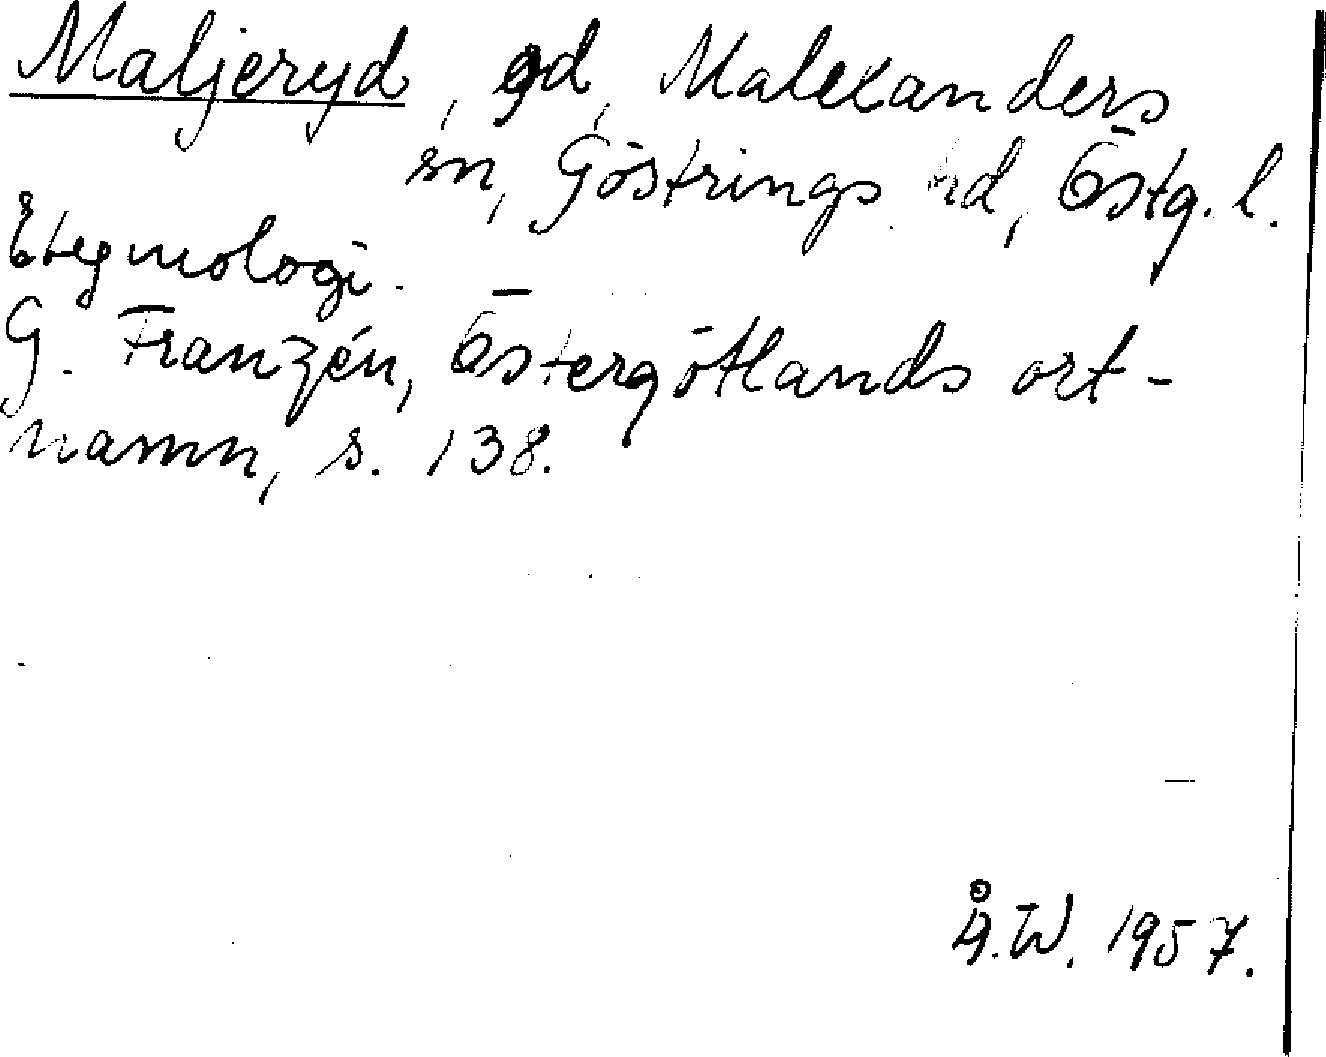 Maljeryd, gd, Malexanders
sn, Göstrings hd, Östg. l.
Etymologi.
G. Franzén, Östergötlands ort-
namn, s. 138.
Å.W. 1957.